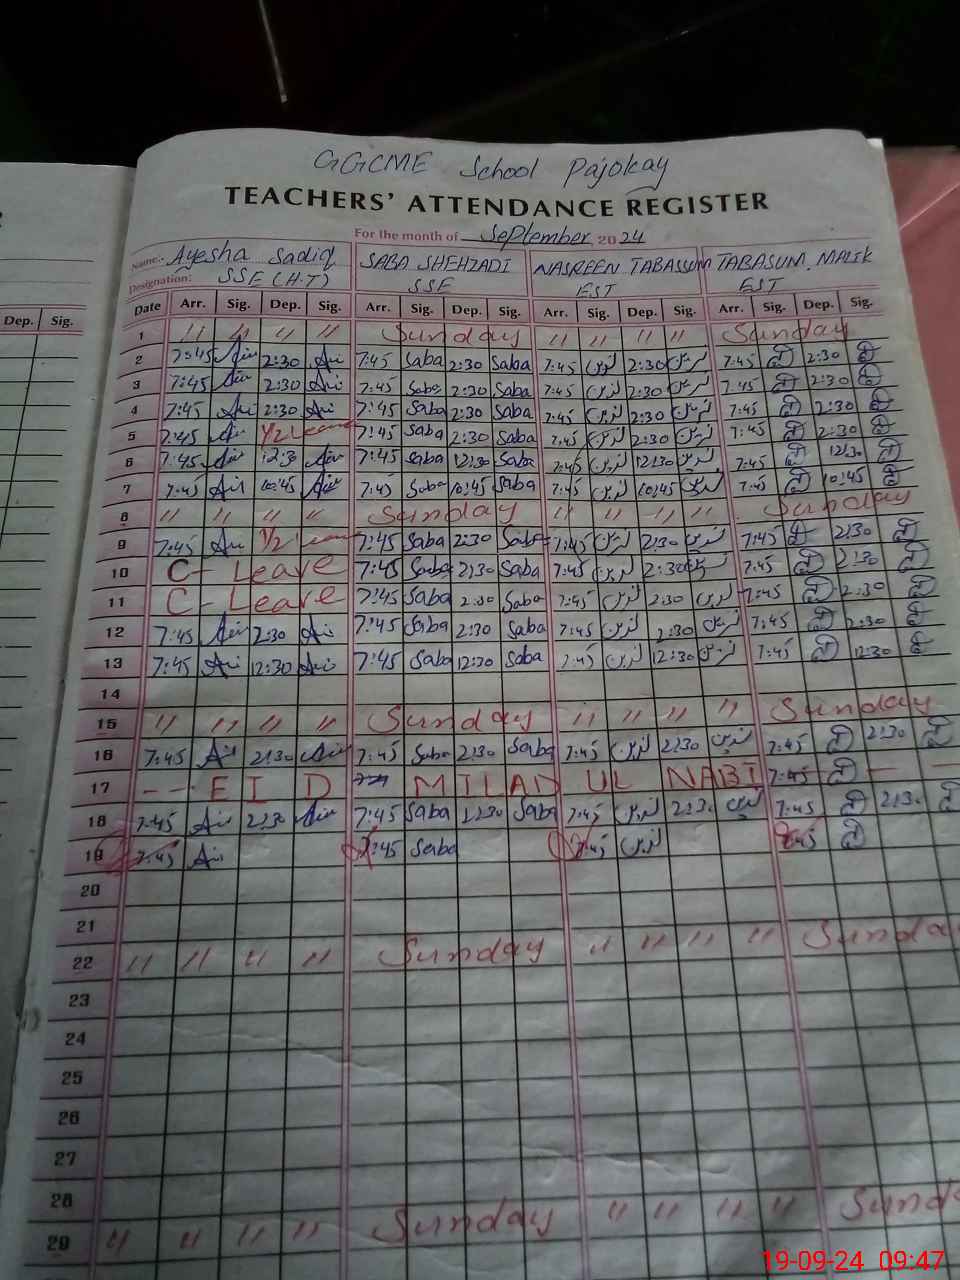 GGCME School Pajokay
TEACHERS' ATTENDANCE REGISTER
For the month of September 2024
Name.. Ayesha Sadiq SABA SHEHZADI NASREEN TABASSUM TABASUM MALIK
Designation: SSE (H.T) SSE EST EST
Dep. Sig. Date Arr. Sig. Dep. Sig. Arr. Sig. Dep. Sig. Arr. Sig. Dep. Sig. Arr. Sig. Dep. Sig.
1 " " " " Sunday " " " " Sunday
2 7:45 2:30 7:45 Saba 2:30 Saba 7:45 نسرین 2:30 نسرین 7:45 2:30
3 7:45 2:30 7:45 Saba 2:30 Saba 7:45 نسرین 2:30 نسرین 7:45 2:30
4 7:45 2:30 7:45 Saba 2:30 Saba 7:45 نسرین 2:30 نسرین 7:45 2:30
5 7:45 1/2 Leave 7:45 Saba 2:30 Saba 7:45 نسرین 2:30 نسرین 7:45 2:30
6 7:45 12:30 7:45 Saba 12:30 Saba 7:45 نسرین 12:30 نسرین 7:45 12:30
7 7:45 10:45 7:45 Saba 10:45 Saba 7:45 نسرین 10:45 نسرین 7:45 10:45
8 " " " " Sunday " " " " Sunday
9 7:45 1/2 Leave 7:45 Saba 2:30 Saba 7:45 نسرین 2:30 نسرین 7:45 2:30
10 C- Leave 7:45 Saba 2:30 Saba 7:45 نسرین 2:30 نسرین 7:45 2:30
11 C- Leave 7:45 Saba 2:30 Saba 7:45 نسرین 2:30 نسرین 7:45 2:30
12 7:45 2:30 7:45 Saba 2:30 Saba 7:45 نسرین 2:30 نسرین 7:45 2:30
13 7:45 12:30 7:45 Saba 12:30 Saba 7:45 نسرین 12:30 نسرین 7:45 12:30
14
15 " " " " Sunday " " " " Sunday
16 7:45 2:30 7:45 Saba 2:30 Saba 7:45 نسرین 2:30 نسرین 7:45 2:30
17 - - EID MILAD UL NABI 7:45 - -
18 7:45 2:30 7:45 Saba Saba 7:45 نسرین 2:30 نسرین 7:45 2:30
19 7:45 7:45 Saba 7:45 نسرین
20
21
22 " " " " Sunday " " " " Sunday
23
24
25
26
27
28
29 " " " " Sunday " " " " Sund
19-09-24 09:47